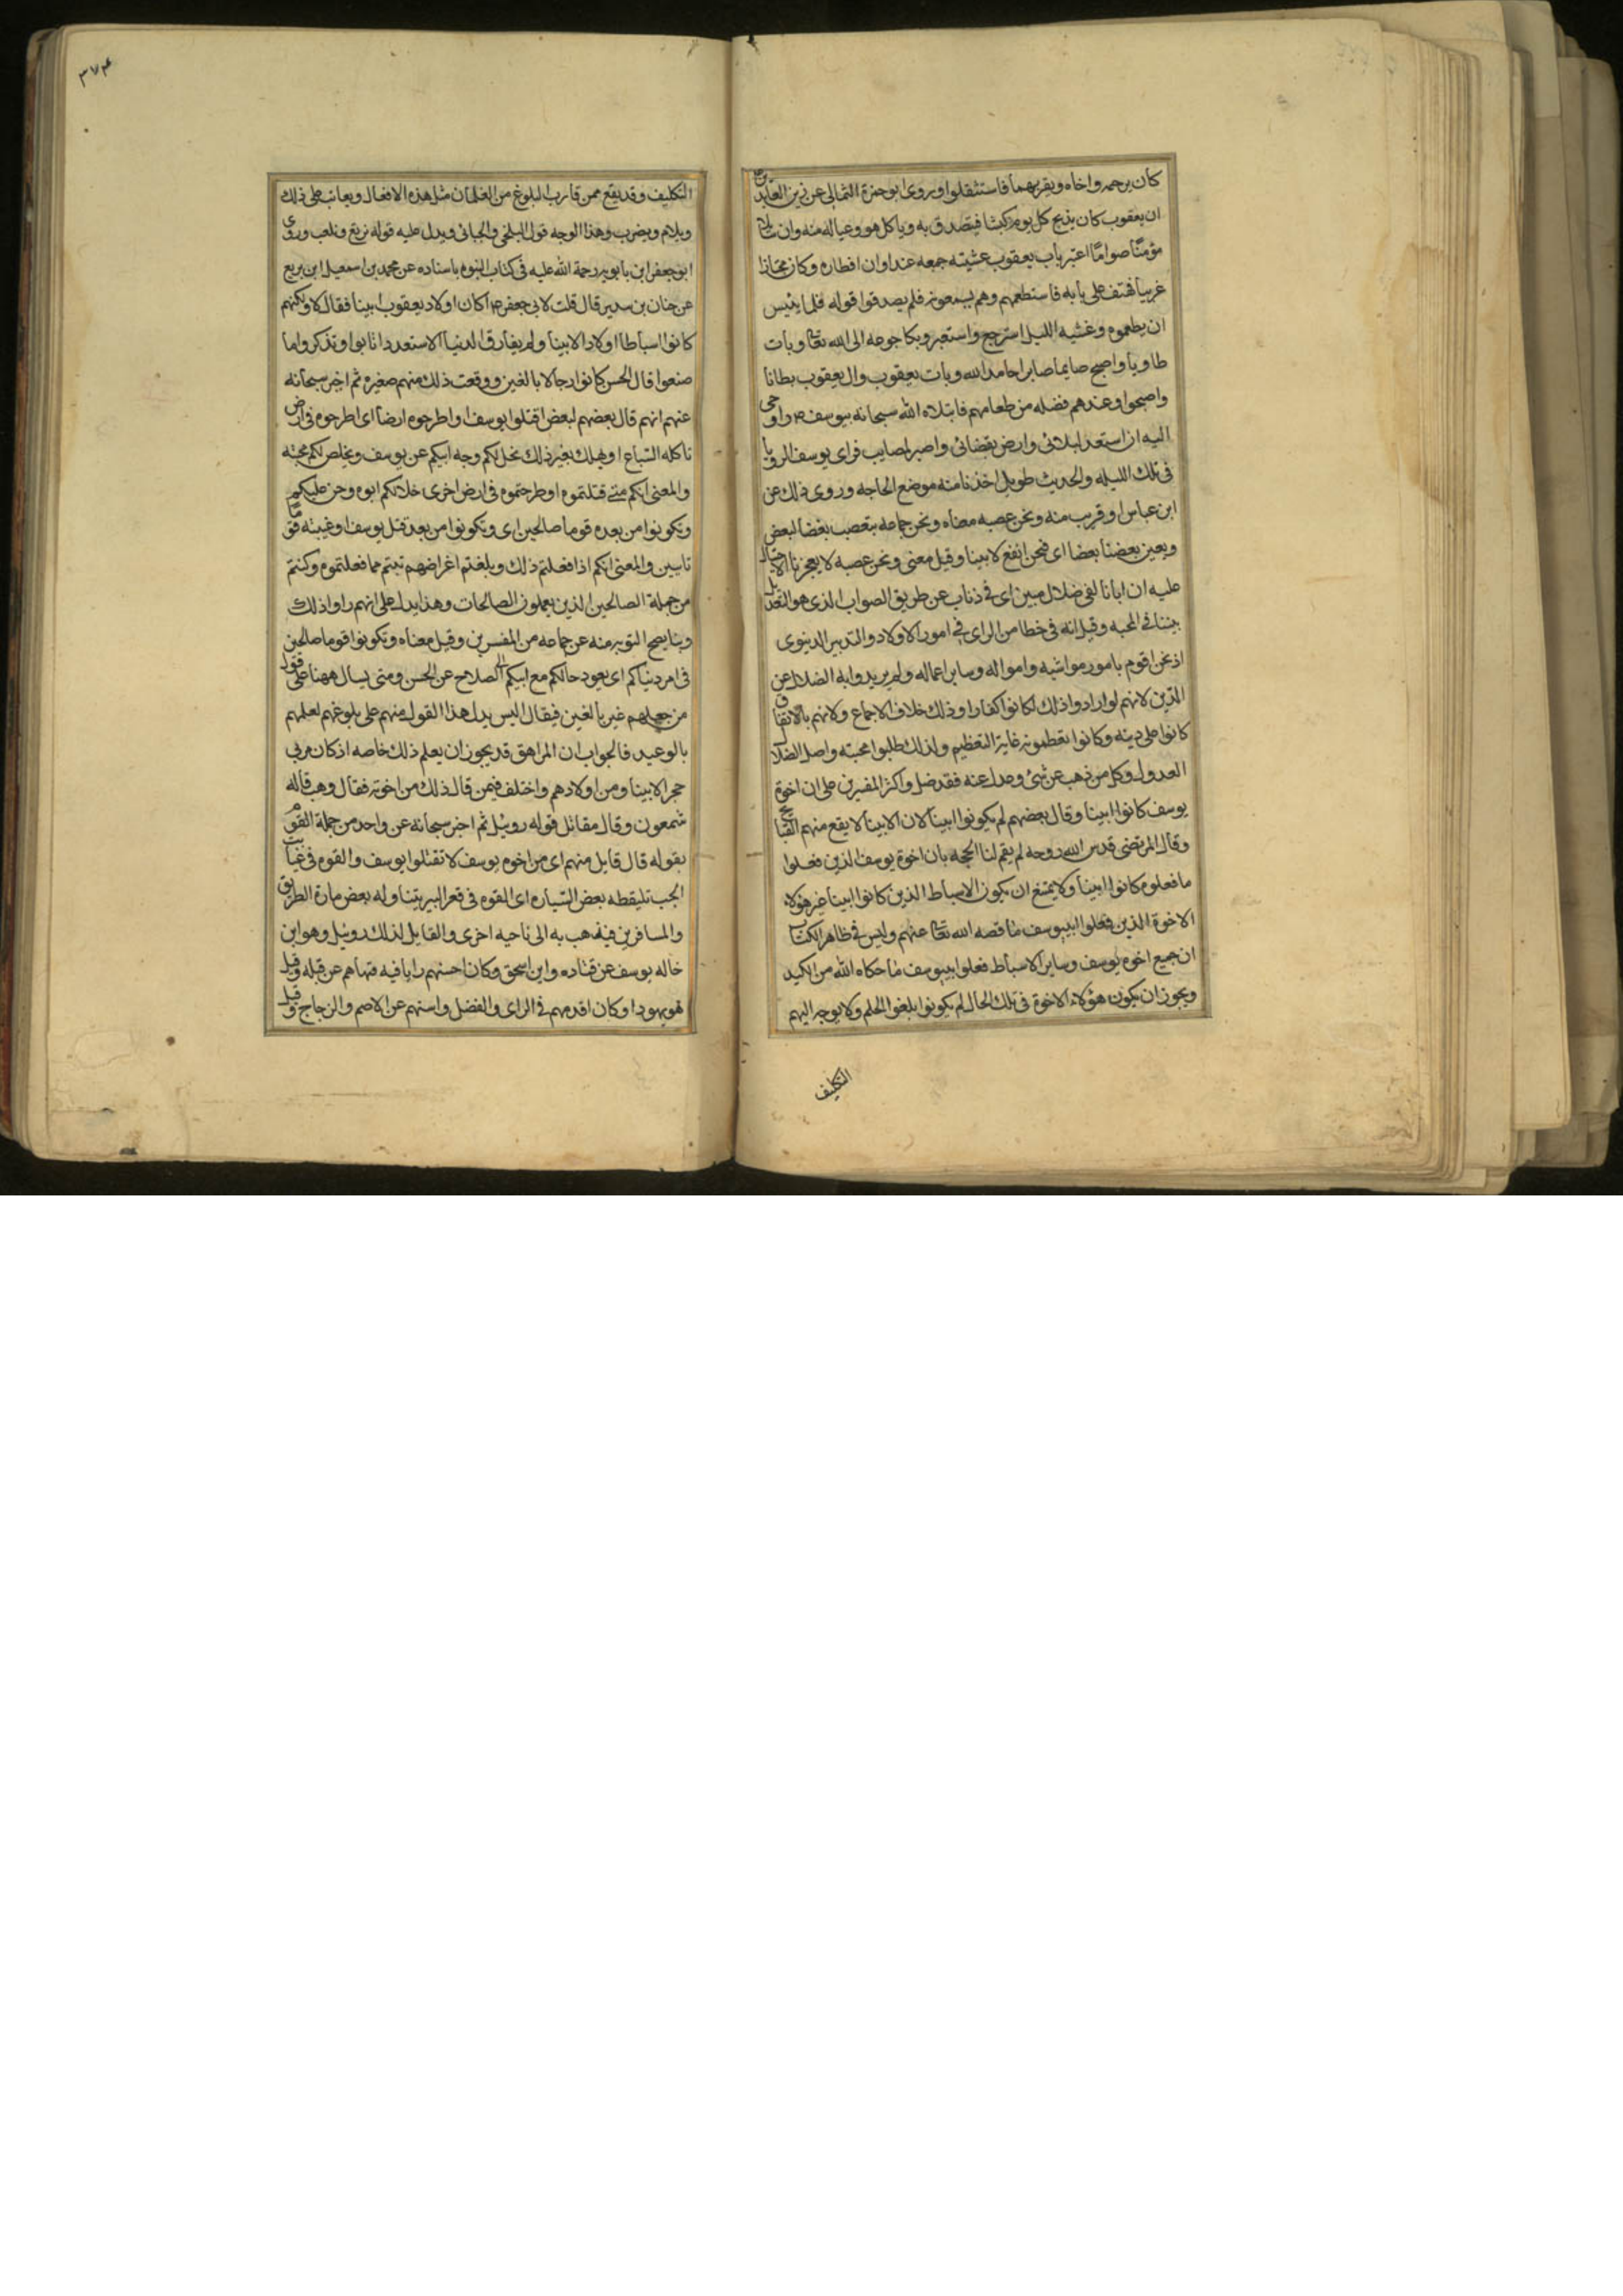 كان يرحمه واخاه ويقربهما فاستثقلوا وروى ابو حمزة الثمالى عن زين العابدين
ان يعقوب كان يذبح كل يوم كبشا فيتصدق به وياكل هو وعياله منه وان سائلا
مؤمنا صواما اعتر بباب يعقوب عشيته جمعه عند اوان افطاره وكان مجتازا
غريبا فهتف على بابه فاستطعمهم وهم يسمعونه فلم يصدقوا قوله فلما ايئس
ان يطعموه وغشيه الليل استرجع واستعبر وبكا جوعه الى الله تعا وبات
طاويا واصبح صايما صابرا حامدا لله وبات يعقوب وال يعقوب بطانا
واصبحوا وعندهم فضله من طعامهم فابتلاه الله سبحانه بيوسف ع واوحى
اليه ان استعد لبلائى وارض بقضائى واصبر لمصايب فراى يوسف الرويا
فى تلك الليله والحديث طويل اخذنا منه موضع الحاجه وروى ذلك عن
ابن عباس او قريب منه ونحن عصبه معناه ونحن جماعه يتعصب بعضنا لبعض
ويعين بعضنا بعضا اى فنحن انفع لابينا وقيل معنى ونحن عصبه لا يعجزنا الاحتيال
عليه ان ابانا لفى ضلال مبين اى فى ذهاب عن طريق الصواب الذى هو التعديل
بيننا فى المحبه وقيل انه فى خطا من الراى فى امور الاولاد والتدبير الدينوى
اذ نحن اقوم بامور مواشيه وامواله وساير اعماله ولم يريدوا به الضلال عن
الدين لانهم لو ارادوا ذلك لكانوا كفارا وذلك خلاف الاجماع ولانهم بالاتفاق
كانوا على دينه وكانوا يعظمونه غاية التعظيم ولذلك طلبوا محبته واصل الضلال
العدول وكل من ذهب عن شئ وعدل عنه فقد ضل واكثر المفسرين على ان اخوة
يوسف كانوا ابينا وقال بعضهم لم يكونوا ابينا لان الابينا لا يقع منهم القبايح
وقال المرتضى قدس الله روحه لم يقم لنا الحجه بان اخوة يوسف الذين فعلوا
ما فعلوه كانوا ابينا ولا يمتنع ان يكون الاسباط الذين كانوا ابينا غير هؤلاء
الاخوة الذين فعلوا بيوسف ما قصه الله تعا عنهم وليس فى ظاهر الكتاب
ان جميع اخوه يوسف وساير الاسباط فعلوا بيوسف ما حكاه الله من الكيد
ويجوز ان يكون هؤلاء الاخوة فى تلك الحال لم يكونوا بلغوا الحلم ولا يوجه اليهم
التكليف
٣٧٤
التكليف وقد يقع ممن قارب البلوغ من الغلمان مثل هذه الافعال ويعاتب على ذلك
ويلام ويضرب وهذا الوجه قول البلخى والجبائى ويدل عليه قوله نرتع ونلعب وروى
ابو جعفر ابن بابويه رحمة الله عليه فى كتاب النبوه باسناده عن محمد بن اسمعيل ابن بزيع
عن حنان بن سدير قال قلت لابى جعفر ع اكان اولاد يعقوب ابينا فقال لا ولكنهم
كانوا اسباطا اولاد الابينا ولم يفارق الدنيا الا سعدا تابوا وتذكروا ما
صنعوا قال الحسن كانوا رجالا بالغين ووقعت ذلك منهم صغيره ثم اخبر سبحانه
عنهم انهم قال بعضهم لبعض اقتلوا يوسف او اطرحوه ارضا اى اطرحوه فى ارض
تاكله السباع او يهلك بغير ذلك يخل لكم وجه ابيكم عن يوسف ويخلص لكم محبته
والمعنى انكم متى قتلتموه او طرحتموه فى ارض اخرى خلا لكم ابوه وحن عليكم
وتكونوا من بعده قوما صالحين اى وتكونوا من بعد قتل يوسف او غيبته قوما
تايبين والمعنى انكم اذا فعلتم ذلك وبلغتم اغراضهم تبتم مما فعلتموه وكنتم
من جملة الصالحين الذين يعملون الصالحات وهذا يدل على انهم راوا ذلك
ذنبا يصح التوبه منه عن جماعه من المفسرين وقيل معناه وتكونوا قوما صالحين
فى امر دنياكم اى يعود حالكم مع ابيكم الى الصلاح عن الحسن ومتى يسال ههنا على قول
من جعلهم غير بالغين فيقال اليس يدل هذا القول منهم على بلوغهم لعلمهم
بالوعيد فالجواب ان المراهق قد يجوز ان يعلم ذلك خاصه اذ كان مربى
حجر الابينا ومن اولادهم واختلف فيمن قال ذلك من اخوته فقال وهب قاله
شمعون وقال مقاتل قوله روبيل ثم اخبر سبحانه عن واحد من جملة القوم
بقوله قال قايل منهم اى من اخوه يوسف لا تقتلوا يوسف والقوه فى غيابت
الجب تليقطه بعض السياره اى القوه فى قعر البير يتناوله بعض مارة الطريق
والمسافرين فيذهب به الى ناحيه اخرى والقايل لذلك روبيل وهو ابن
خاله يوسف عن قتاده وابن اسحق وكان احسنهم رايا فيه فنهاهم عن قتله وقيل
هو يهودا وكان اقدمهم فى الراى والفضل واسنهم عن الاصم والزجاج وقيل